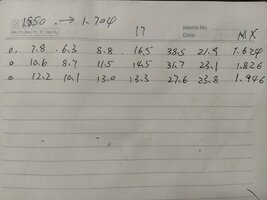 1850 → 1.704
Memo No.
17
Mo Tu We Th Fr Sa Su
Date
MX
0, 7.8 6.3 8.8 16.5 38.5 21.9 1.624
0 10.6 8.7 11.5 14.5 31.7 23.1 1.826
0 12.2 10.1 13.0 13.3 27.6 23.8 1.946